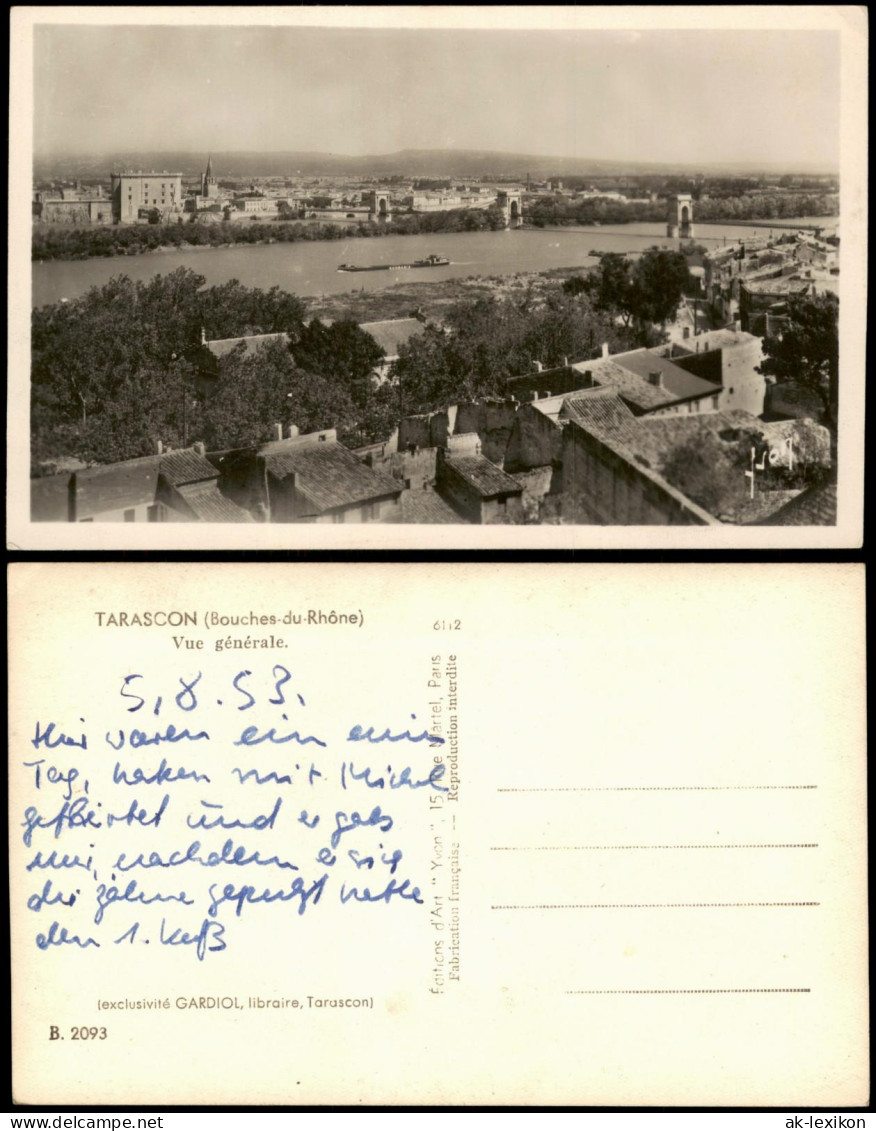 YVON
TARASCON (Bouches-du-Rhône)
Vue générale.
6112
5.8.53.
Hier waren ein
Tag, haben mit Michel
geflirtet und er gab
mir, nachdem er sich
die Zähne geputzt hatte
den 1. Kuß
Editions d'Art "Yvon", 15, Rue Martel, Paris
Fabrication française -- Reproduction interdite
(exclusivité GARDIOL, libraire, Tarascon)
B. 2093
ak-lexikon